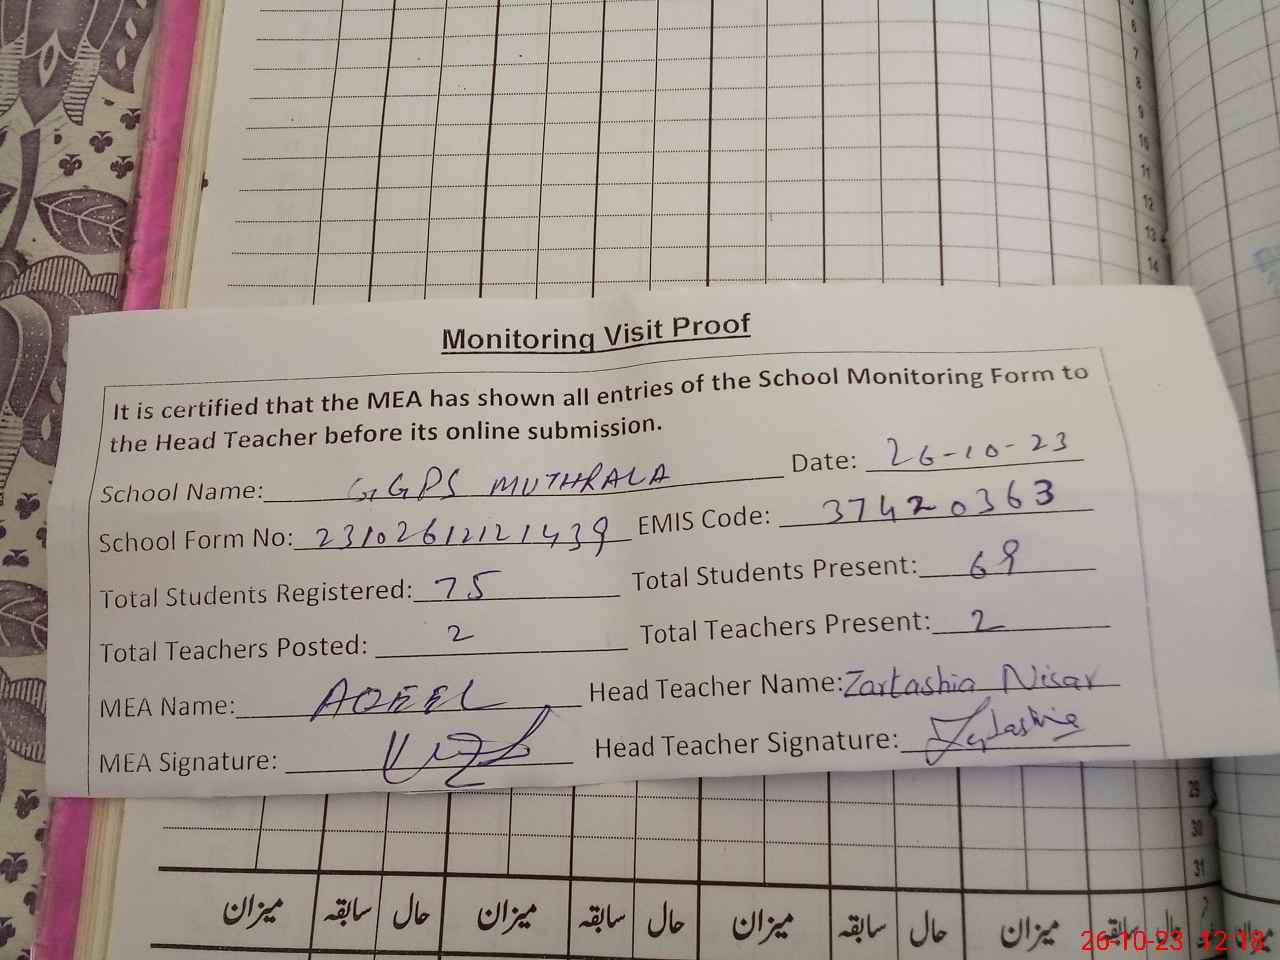 5
6
7
8
9
10
11
12
13
14
Monitoring Visit Proof
It is certified that the MEA has shown all entries of the School Monitoring Form to
the Head Teacher before its online submission.
School Name: GGPS MUTHRALA Date: 26-10-23
School Form No: 23102612121439 EMIS Code: 37420363
Total Students Registered: 75 Total Students Present: 69
Total Teachers Posted: 2 Total Teachers Present: 2
MEA Name: AQEEL Head Teacher Name: Zartashia Nisar
MEA Signature: Head Teacher Signature: Zartashia
29
30
31
میزان سابقہ حال میزان سابقہ حال میزان سابقہ حال میزان سابقہ حال میزان
26-10-23 12:18